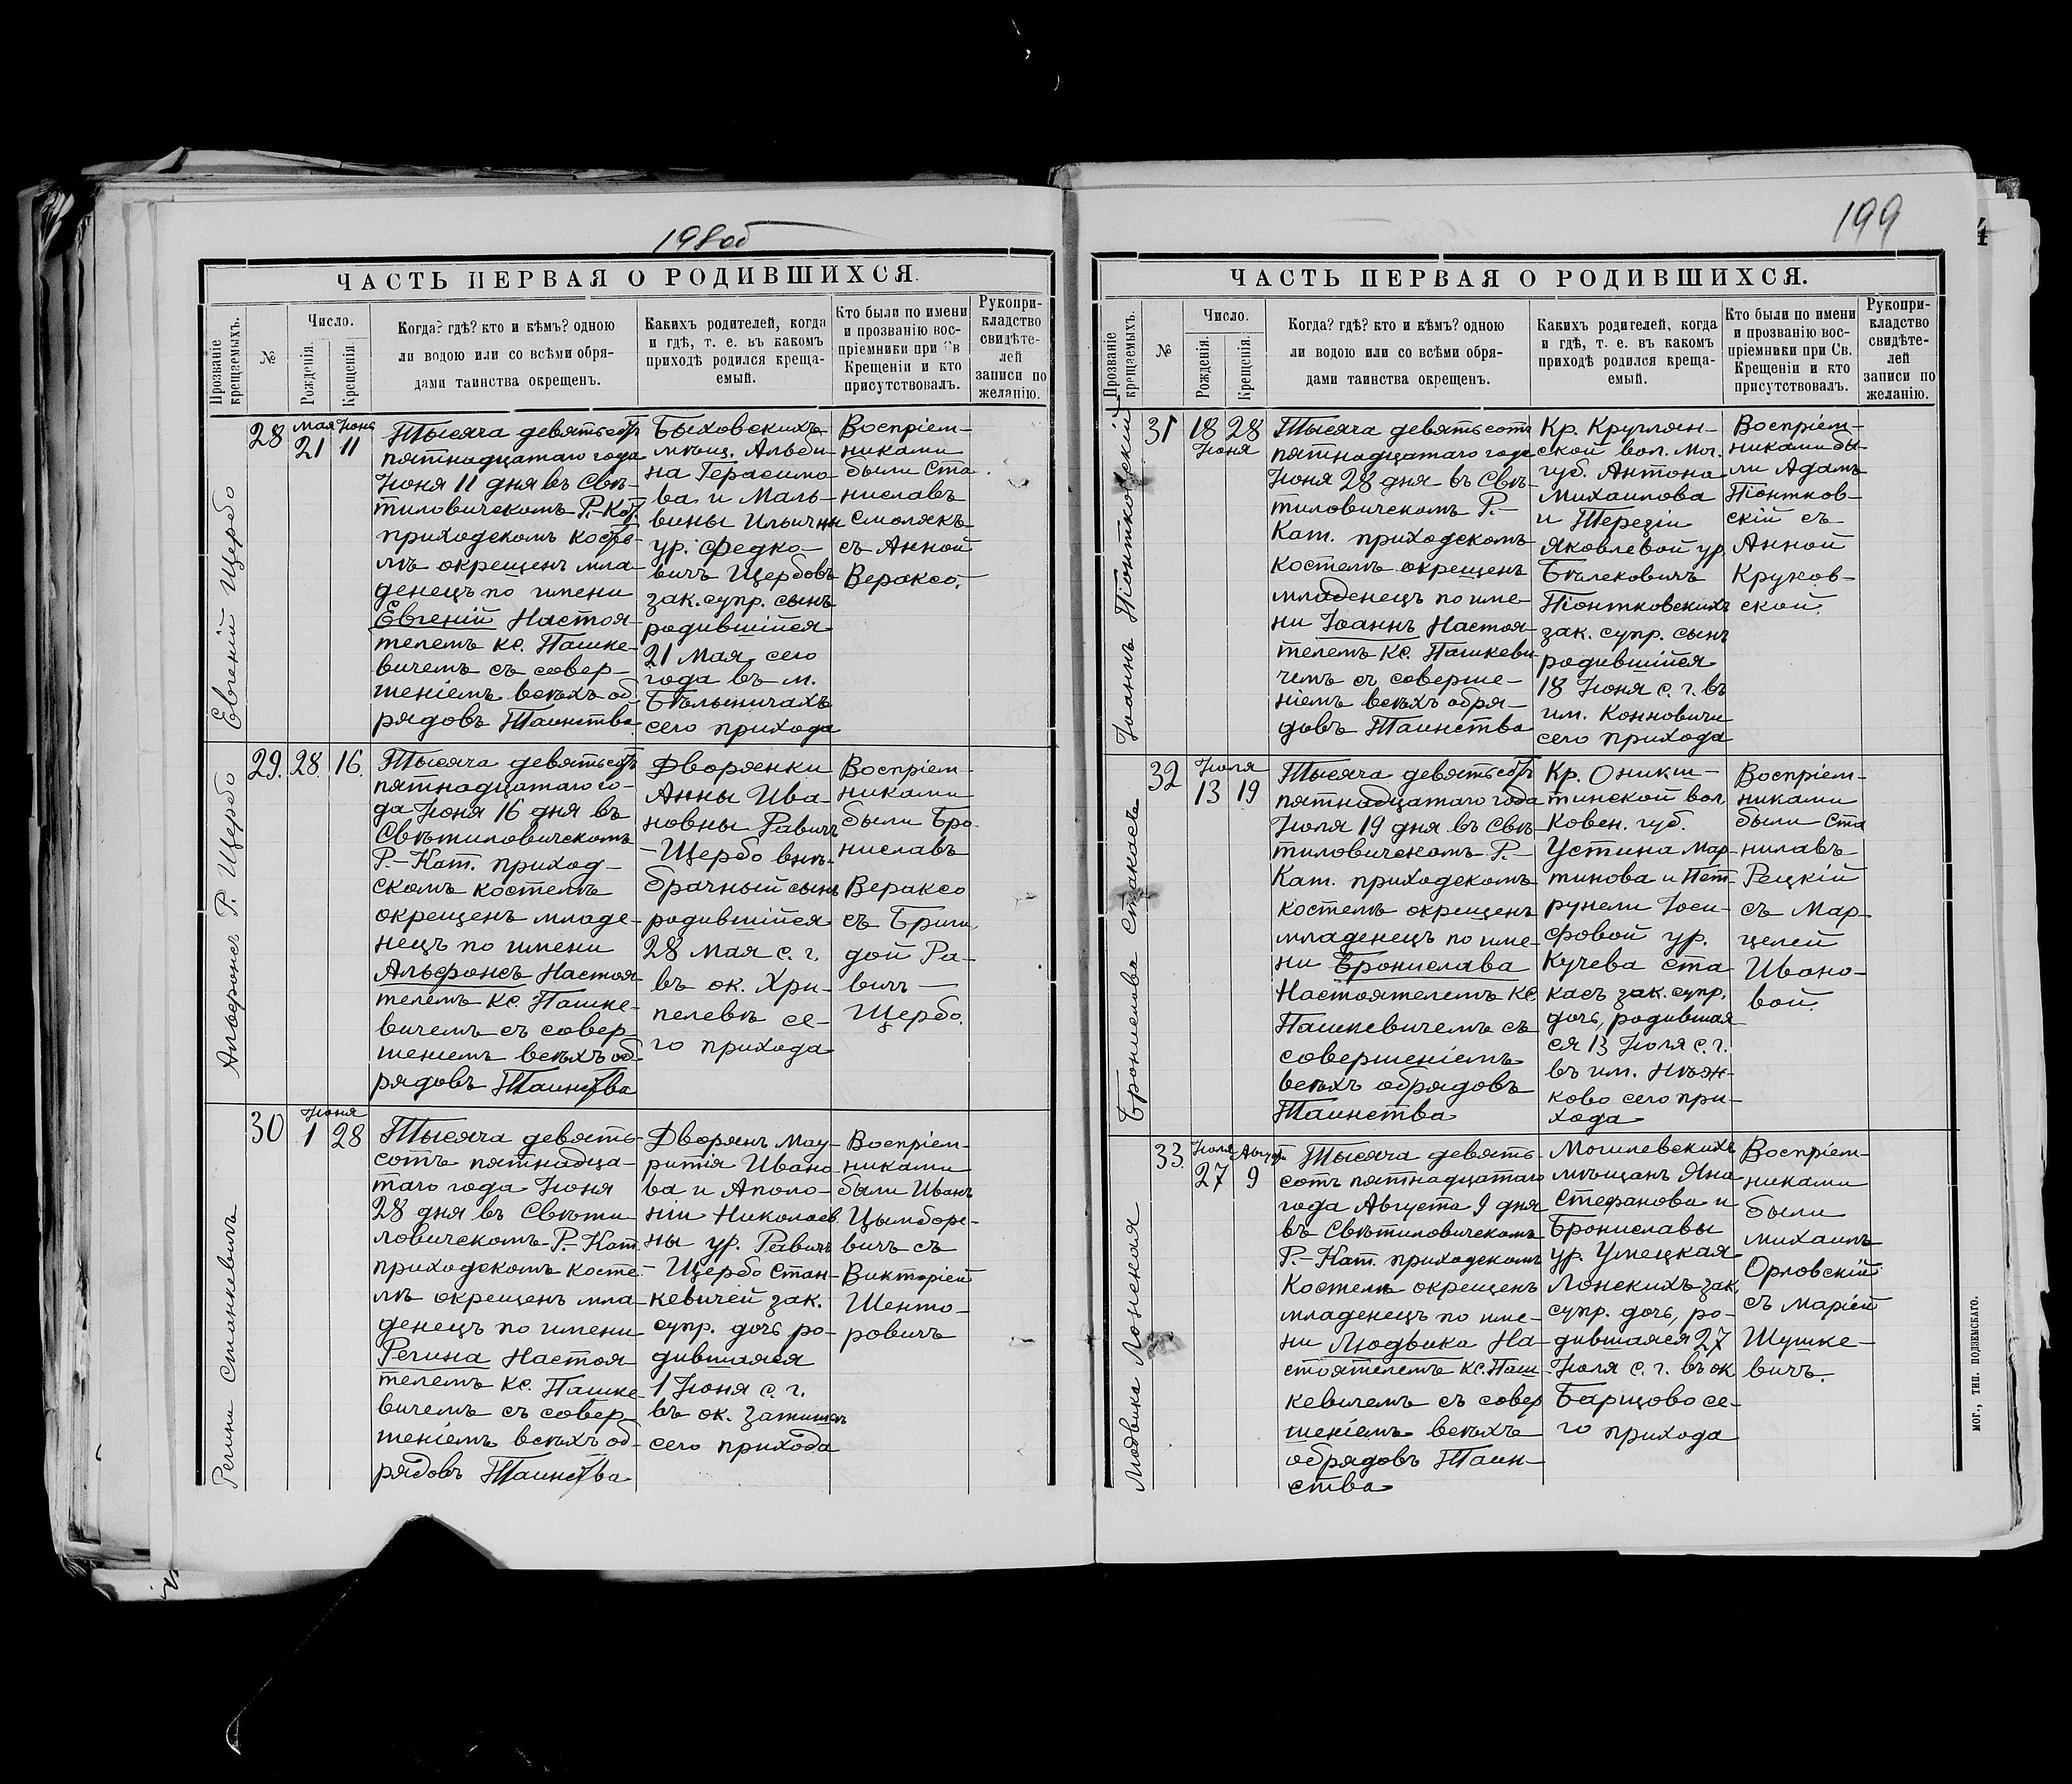 198об
ЧАСТЬ ПЕРВАЯ О РОДИВШИХСЯ.
Прозваніе крещаемыхъ.
№
Число.
Рожденія.
Крещенія
Когда? гдѣ? кто и кѣмъ? одною
ли водою или со всѣми обря-
дами таинства окрещенъ.
Каихъ родителей, когда
и гдѣ, т. е. въ какомъ
приходѣ родился креща-
емый.
Кто были по имени
и прозванію вос-
пріемники при Св
Крещеніи и кто
присутствовалъ.
Рукопри-
кладство
свидѣте-
лей
записи по
желанію.
Евгеній Щербо
28
Мая Іюня
21 11
Тысяча девятьсотъ
пятнадцатаго года
Іюня 11 дня въ Свѣ-
тиловичскомъ Р.-Кат.
приходскомъ косте-
лѣ окрещенъ мла-
денецъ по имени
Евгеній Настоя-
телемъ кс. Пашке-
вичемъ съ совер-
шеніемъ всѣхъ об-
рядовъ Таинства
Быховскихъ
мѣщ. Альби-
на Герасимо
ва и Маль-
вины Ильичны
ур. Федко-
вичъ Щербовъ
зак. супр. сынъ
родившійся
21 Мая сего
года въ м.
Бѣлыничахъ
сего прихода
Воспріем-
никами
были Ста
ниславъ
Смолякъ
съ Анной
Вераксо.
Альфонсъ Р. Щербо
29. 28. 16.
Тысяча девятьсотъ
пятнадцатаго го-
да Іюня 16 дня въ
Свѣтиловичскомъ
Р.-Кат. приход-
скомъ костелѣ
окрещенъ младе-
нецъ по имени
Альфонсъ Настоя
телемъ кс. Пашке-
вичемъ съ совер-
шеніемъ всѣхъ об-
рядовъ Таинства
Дворянки
Анны Ива-
новны Равичъ
-Щербо внѣ-
брачный сынъ
родившійся
28 Мая с. г.
въ ок. Хри-
пелевѣ се-
го прихода
Воспріем-
никами
были Бро-
ниславъ
Вераксо
съ Бриги
дой Ра-
вичъ-
Щербо.
Регина Станкевичъ
30
Іюня
1 28
Тысяча девять-
сотъ пятнадца-
таго года Іюня
28 дня въ Свѣти
ловичскомъ Р.-Кат.
приходскомъ косте-
лѣ окрещенъ мла-
денецъ по имени
Регина Настоя-
телемъ кс. Пашке-
вичемъ съ совер-
шеніемъ всѣхъ об-
рядовъ Таинства
Дворянъ Мау-
ритія Ивано-
ва и Аполо-
ніи Николаев
ны ур. Равичъ
-Щербо Стан-
кевичей зак.
супр. дочь ро-
дившаяся
1 Іюня с. г.
въ ок.
сего прихода
Воспріем-
никами
были Иванъ
Цымборе-
вичъ съ
Викторіей
Шенто-
ровичъ
199
ЧАСТЬ ПЕРВАЯ О РОДИВШИХСЯ.
Прозваніе крещаемыхъ.
№
Число.
Рожденія.
Крещенія.
Когда? гдѣ? кто и кѣмъ? одною
ли водою или со всѣми обря-
дами таинства окрещенъ.
Какихъ родителей, когда
и гдѣ, т. е. въ какомъ
приходѣ родился креща-
емый.
Кто были по имени
и прозванію вос-
пріемники при Св.
Крещеніи и кто
присутствовалъ.
Рукопри-
кладство
свидѣте-
лей
записи по
желанію.
Іоаннъ Піонтковскій
31 18 28
Іюня
Тысяча девятьсотъ
пятнадцатаго года
Іюня 28 дня въ Свѣ-
тиловичскомъ Р.-
Кат. приходскомъ
костелѣ окрещенъ
младенецъ по име-
ни Іоаннъ Настоя-
телемъ кс. Пашкеви-
чемъ съ соверше-
ніемъ всѣхъ обря-
довъ Таинства
Кр. Круглян-
ской вол. Мог.
губ. Антона
Михаилова
и Терезіи
Яковлевой ур.
Бѣлековичъ
Піонтковскихъ
зак. супр. сынъ
родившійся
18 Іюня с. г. въ
им. Конновичи
сего прихода
Воспріем-
никами бы-
ли Адамъ
Піонтков-
скій съ
Анной
Кружов-
ской.
Бронислава Стакасъ
32
Іюля
13 19
Тысяча девятьсотъ
пятнадцатаго года
Іюля 19 дня въ Свѣ-
тиловичскомъ Р.-
Кат. приходскомъ
костелѣ окрещенъ
младенецъ по име-
ни Бронислава
Настоятелемъ кс.
Пашкевичемъ съ
совершеніемъ
всѣхъ обрядовъ
Таинства
Кр. Оникш-
тинской вол.
Ковен. губ.
Устина Мар-
тинова и Пет-
рунели Іоси-
фовой ур.
Кучева Ста
касъ зак. супр.
дочь, родившая
ся 13 Іюля с. г.
въ им. Нѣж-
ково сего при-
хода
Воспріем-
никами
были Ста
нилавъ
Рецкій
съ Мар-
целей
Ивано-
вой.
Людвика Лонская
33.
Іюля Августа
27 9
Тысяча девять-
сотъ пятнадцатаго
года Августа 9 дня
въ Свѣтиловичскомъ
Р.-Кат. приходскомъ
костелѣ окрещенъ
младенецъ по име-
ни Людвика На-
стоятелемъ кс. Паш-
кевичемъ съ совер
шеніемъ всѣхъ
обрядовъ Таин-
ства
Могилевскихъ
мѣщанъ Яна
Стефанова и
Брониславы
ур. Умецкая
Лонскихъ зак.
супр. дочь, ро-
дившаяся 27
Іюля с. г. въ ок
Барцово се-
го прихода
Воспріем-
никами
были
Михаилъ
Орловскій
съ Маріей
Шушке-
вичъ.
МОГ., ТИП. ПОДЗЕМСКАГО.
4